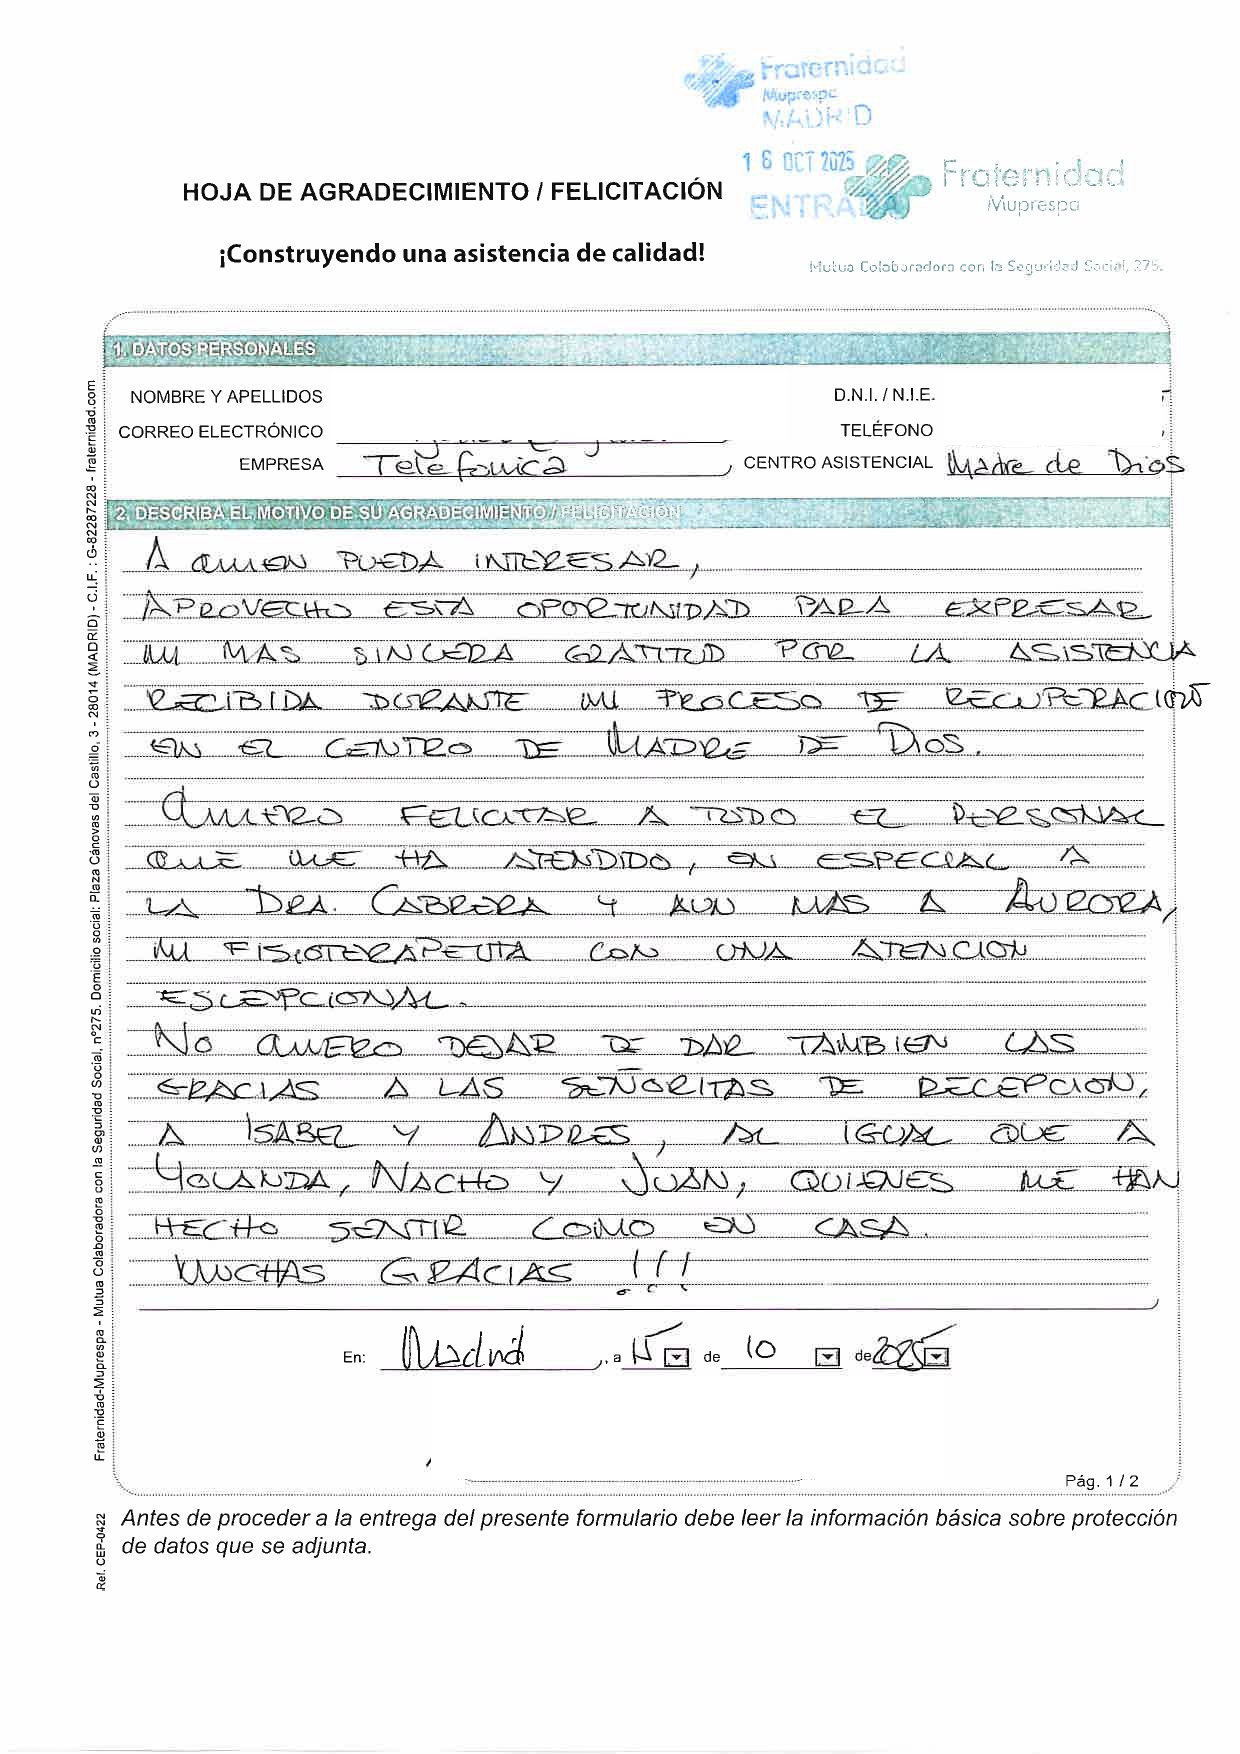 Fraternidad
Muprespa
MADRID
16 OCT 2025
ENTRADA
Fraternidad
Muprespa
Mutua Colaboradora con la Seguridad Social, 275.
HOJA DE AGRADECIMIENTO / FELICITACIÓN
¡Construyendo una asistencia de calidad!
1. DATOS PERSONALES
NOMBRE Y APELLIDOS D.N.I. / N.I.E.
CORREO ELECTRÓNICO TELÉFONO
EMPRESA Telefonica CENTRO ASISTENCIAL Madre de Dios
2. DESCRIBA EL MOTIVO DE SU AGRADECIMIENTO / FELICITACIÓN
A QUIEN PUEDA INTERESAR,
APROVECHO ESTA OPORTUNIDAD PARA EXPRESAR
MI MAS SINCERA GRATITUD POR LA ASISTENCIA
RECIBIDA DURANTE MI PROCESO DE RECUPERACION
EN EL CENTRO DE MADRE DE DIOS.
QUIERO FELICITAR A TODO EL PERSONAL
QUE ME HA ATENDIDO, EN ESPECIAL A
LA DRA. CABRERA Y AUN MAS A AURORA,
MI FISIOTERAPEUTA CON UNA ATENCION
ESCEPCIONAL.
NO QUIERO DEJAR DE DAR TAMBIEN LAS
GRACIAS A LAS SEÑORITAS DE RECEPCION,
A ISABEL Y ANDRES, AL IGUAL QUE A
YOLANDA, NACHO Y JUAN, QUIENES ME HAN
HECHO SENTIR COMO EN CASA.
MUCHAS GRACIAS !!!
En: Madrid, a 15 de 10 de 2025
Pág. 1 / 2
Antes de proceder a la entrega del presente formulario debe leer la información básica sobre protección
de datos que se adjunta.
Fraternidad-Muprespa - Mutua Colaboradora con la Seguridad Social, nº275. Domicilio social: Plaza Cánovas del Castillo, 3 - 28014 (MADRID) - C.I.F. : G-82287228 - fraternidad.com
Ref. CEP-0422